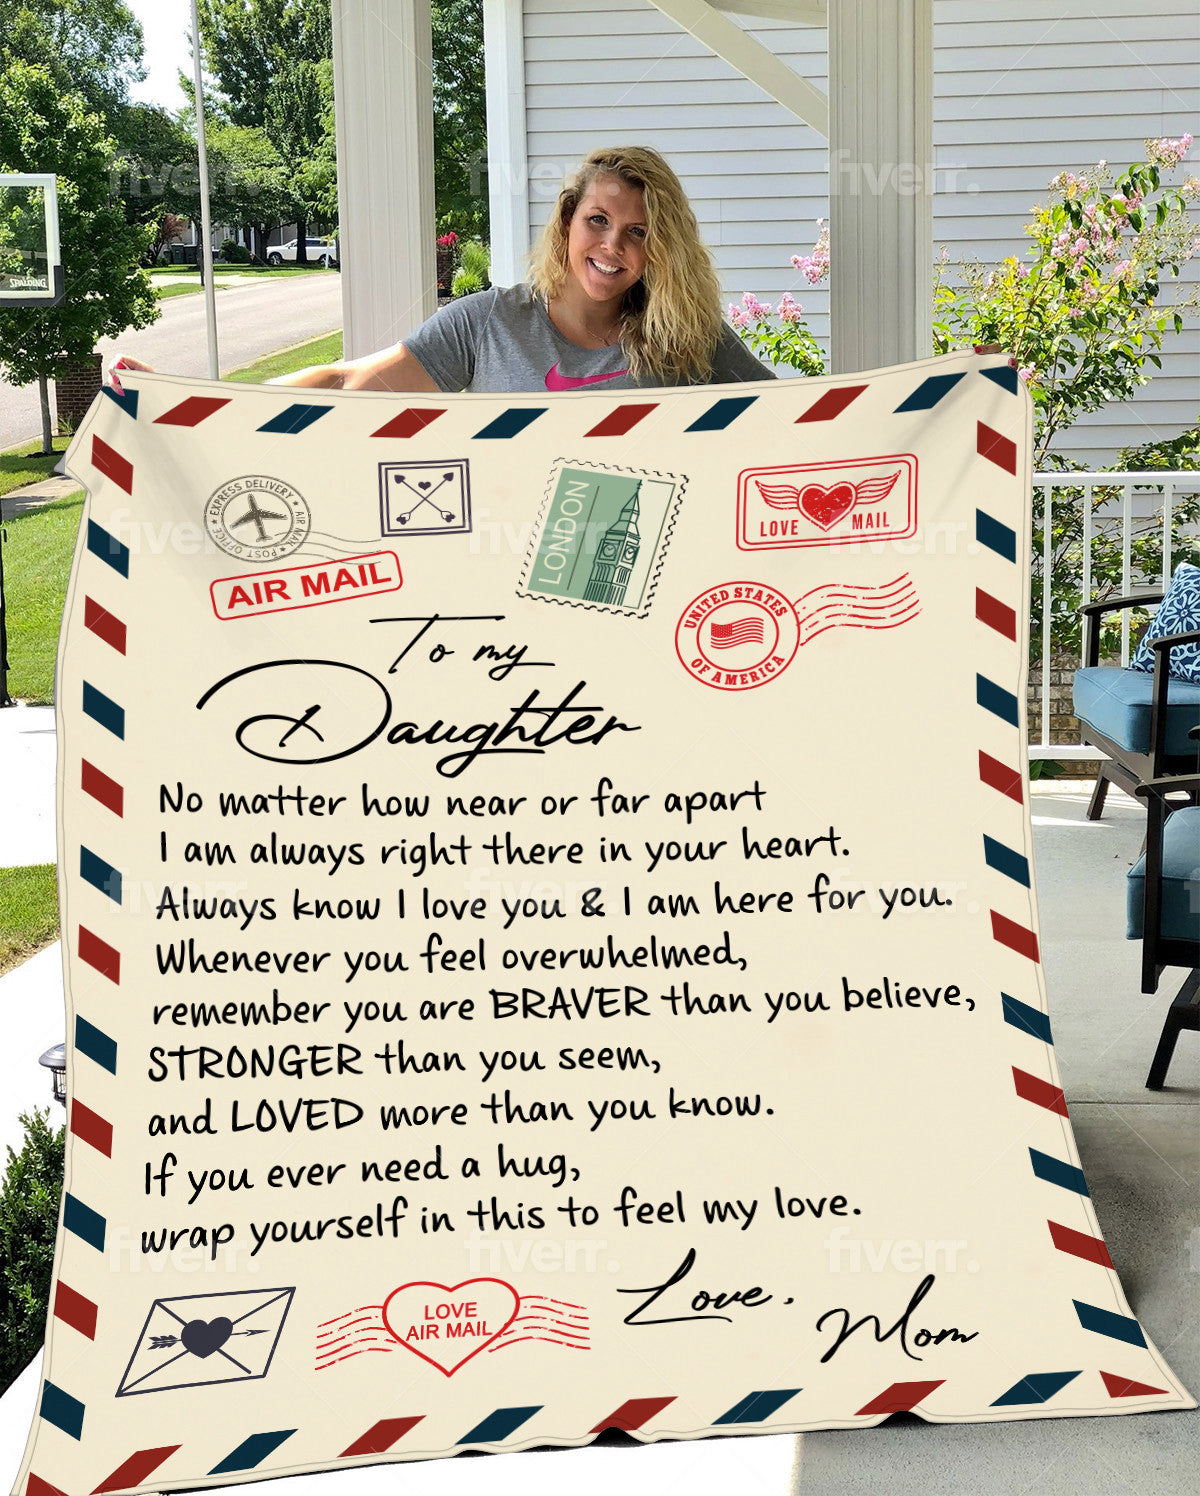 SPALDING
EXPRESS DELIVERY
AIR MAIL
POST OFFICE
AIR MAIL
LONDON
LOVE MAIL
UNITED STATES
OF AMERICA
To my
Daughter
No matter how near or far apart
I am always right there in your heart.
Always know I love you & I am here for you.
Whenever you feel overwhelmed,
remember you are BRAVER than you believe,
STRONGER than you seem,
and LOVED more than you know.
If you ever need a hug,
wrap yourself in this to feel my love.
Love.
Mom
LOVE
AIR MAIL
fiverr.
fiverr.
fiverr.
fiverr.
fiverr.
fiverr.
fiverr.
fiverr.
fiverr.
fiverr.
fiverr.
fiverr.